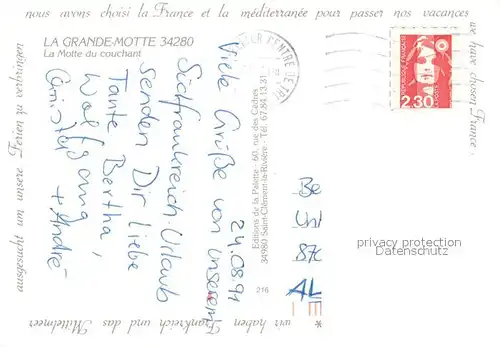 nous avons choisi la France et la méditerranée pour passer nos vacances
we have chosen France.
wir haben Frankreich und das Mittelmeer
ausgesucht um unsere Ferien zu verbringen
LA GRANDE-MOTTE 34280
La Motte du couchant
24.08.91
Viele Grüße von unserem
Südfrankreich-Urlaub
senden Dir liebe
Tante Bertha,
Wolfgang
Christel
+ André
Editions de la Palette - 60, rue des Cèdres
34980 Saint-Clément-la-Rivière - Tél. 67.84.13.31
216
CENTRE DE TRI
REPUBLIQUE FRANÇAISE
2,30
LA POSTE
Be
Un
870
AL
privacy protection
Datenschutz